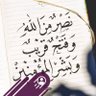 نَصْرٌ مِنَ اللَّهِ
وَفَتْحٌ قَرِيبٌ
وَبَشِّرِ الْمُؤْمِنِينَ